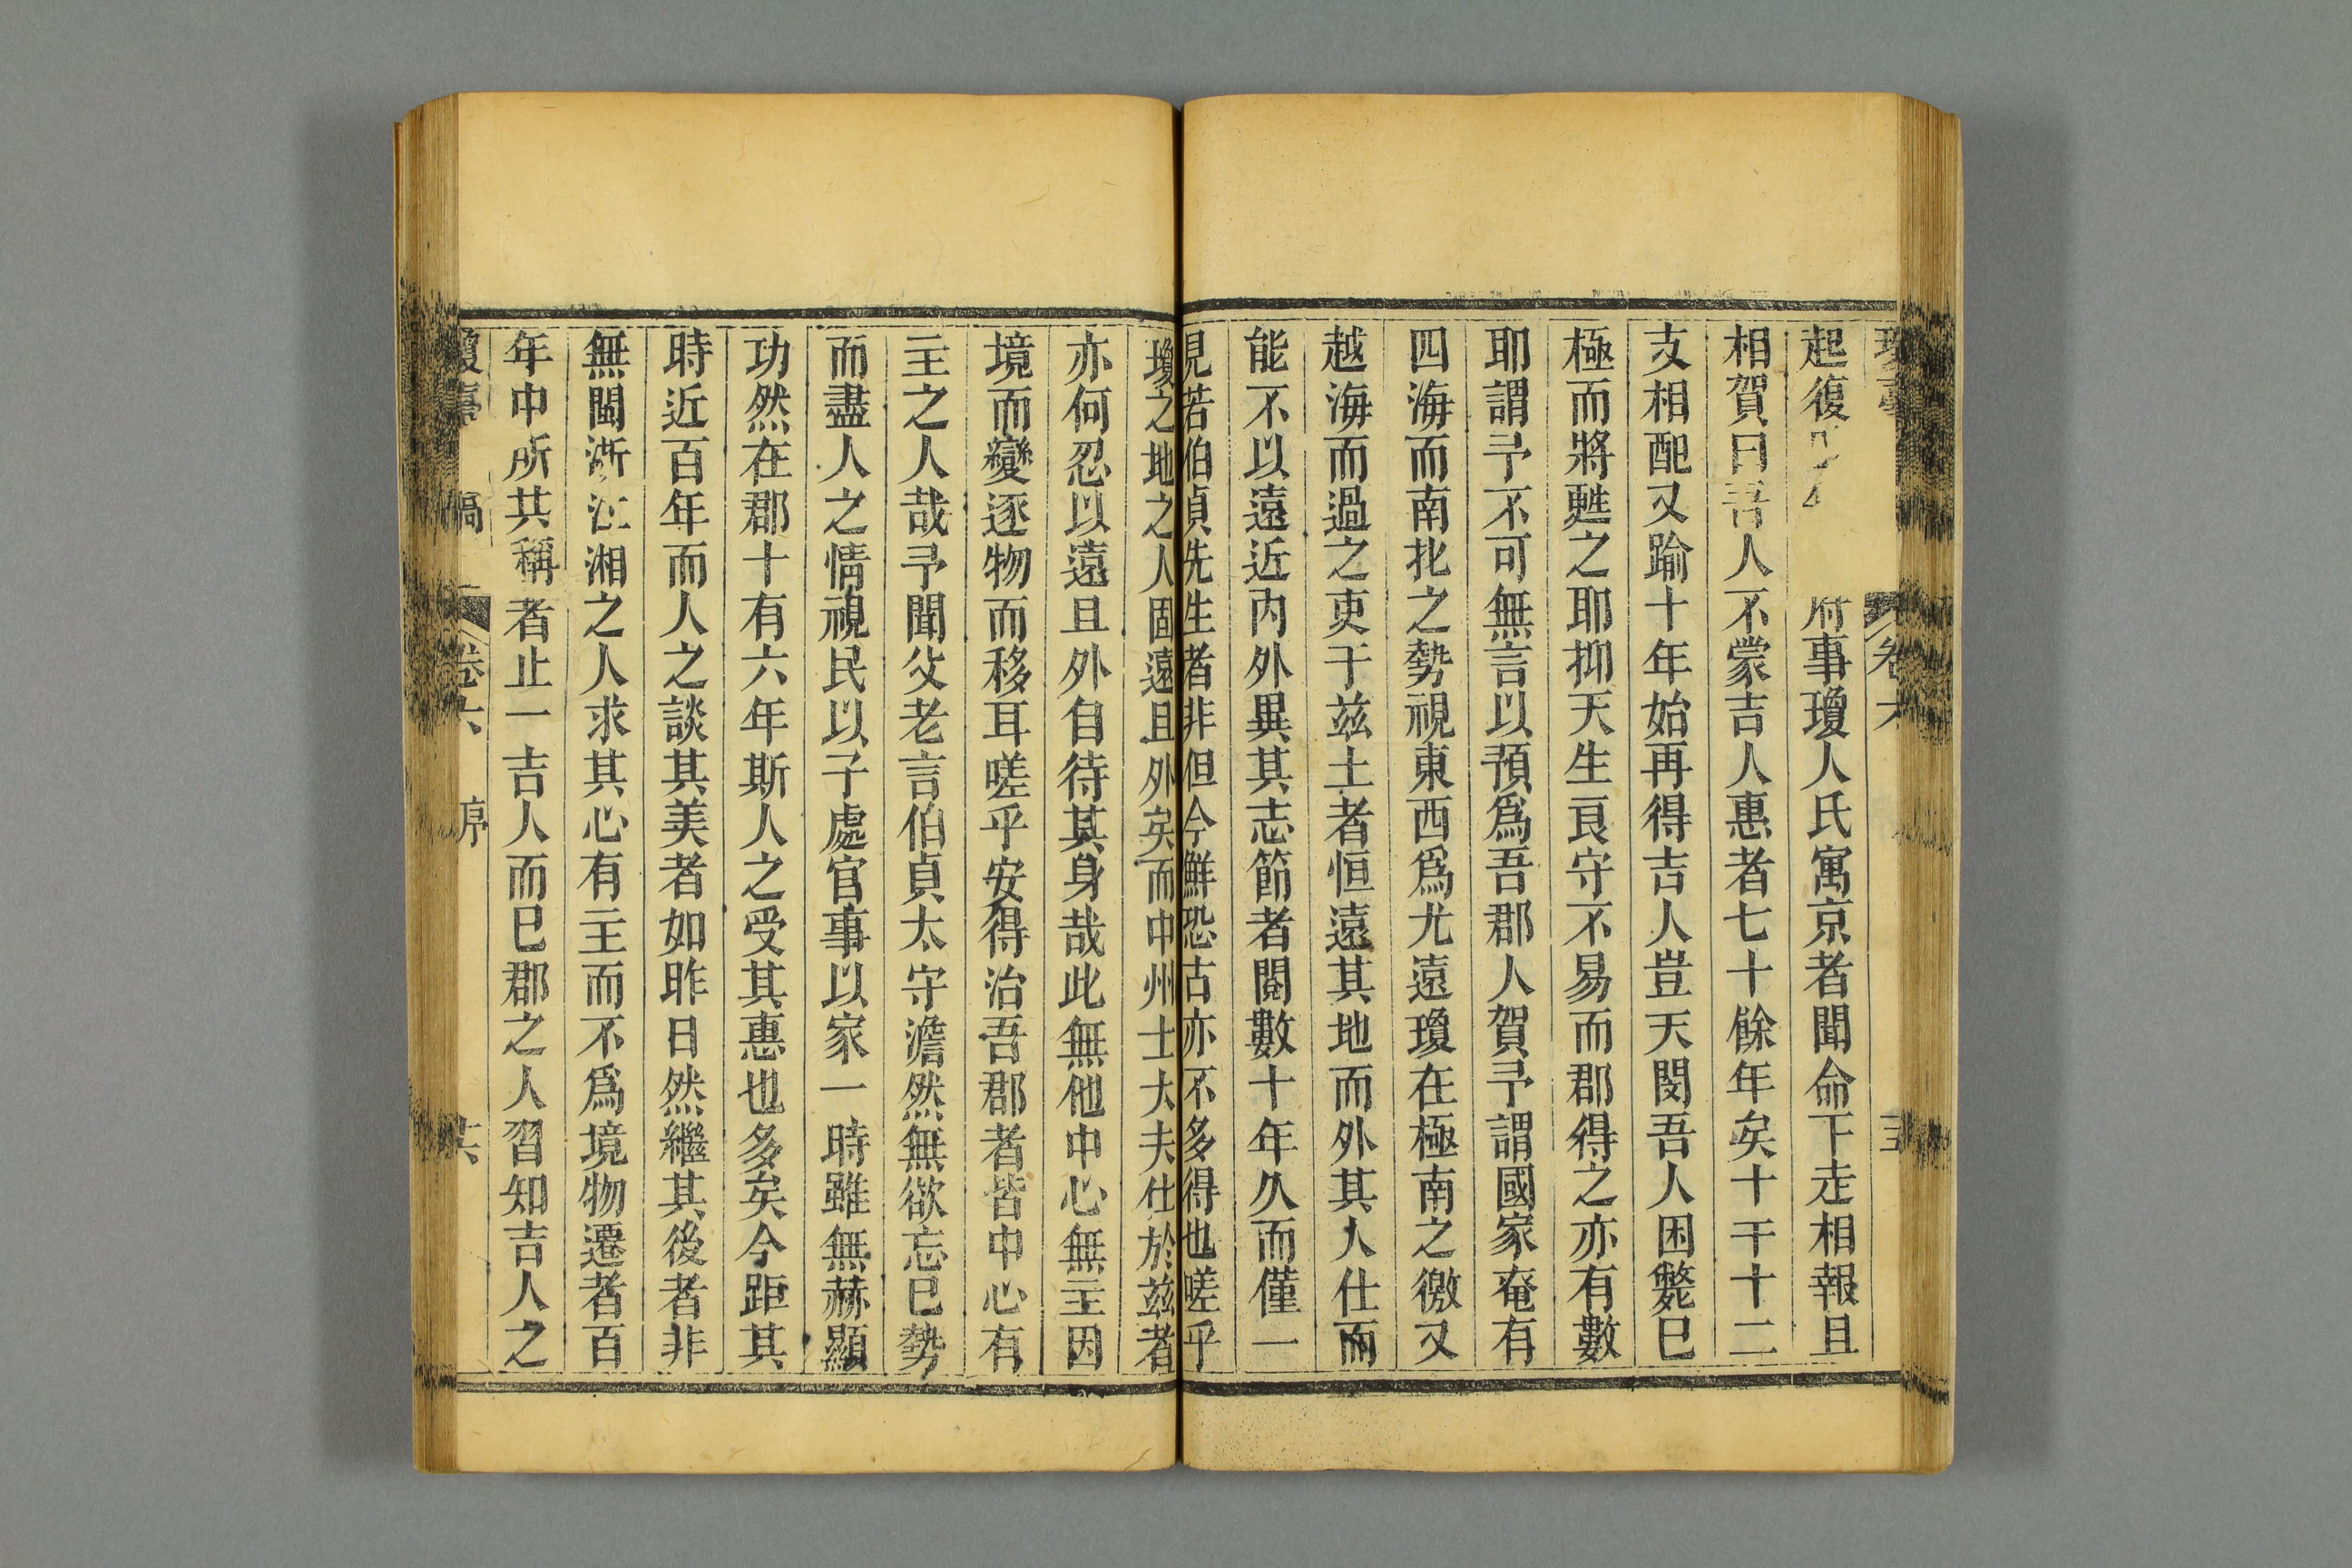 卷六
起復 府事瓊人氏寓京者聞命下走相報且
相賀曰吾人不蒙吉人惠者七十餘年矣十干十二
支相配又踰十年始再得吉人豈天閔吾人困斃已
極而將甦之耶抑天生良守不易而郡得之亦有數
耶謂予不可無言以預爲吾郡人賀予謂國家奄有
四海而南北之勢視東西爲尤遠瓊在極南之徼又
越海而過之吏于兹土者恒遠其地而外其人仕而
能不以遠近内外異其志節者閱數十年久而僅一
見若伯貞先生者非但今鮮恐古亦不多得也嗟乎
瓊之地之人固遠且外矣而中州士大夫仕於兹者
亦何忍以遠且外自待其身哉此無他中心無主因
境而變逐物而移耳嗟乎安得治吾郡者皆中心有
主之人哉予聞父老言伯貞太守澹然無欲忘已勢
而盡人之情視民以子處官事以家一時雖無赫顯
功然在郡十有六年斯人之受其惠也多矣今距其
時近百年而人之談其美者如昨日然繼其後者非
無閩浙江湘之人求其心有主而不爲境物遷者百
年中所共稱者止一吉人而已郡之人習知吉人之
瓊臺 稿 卷六 序